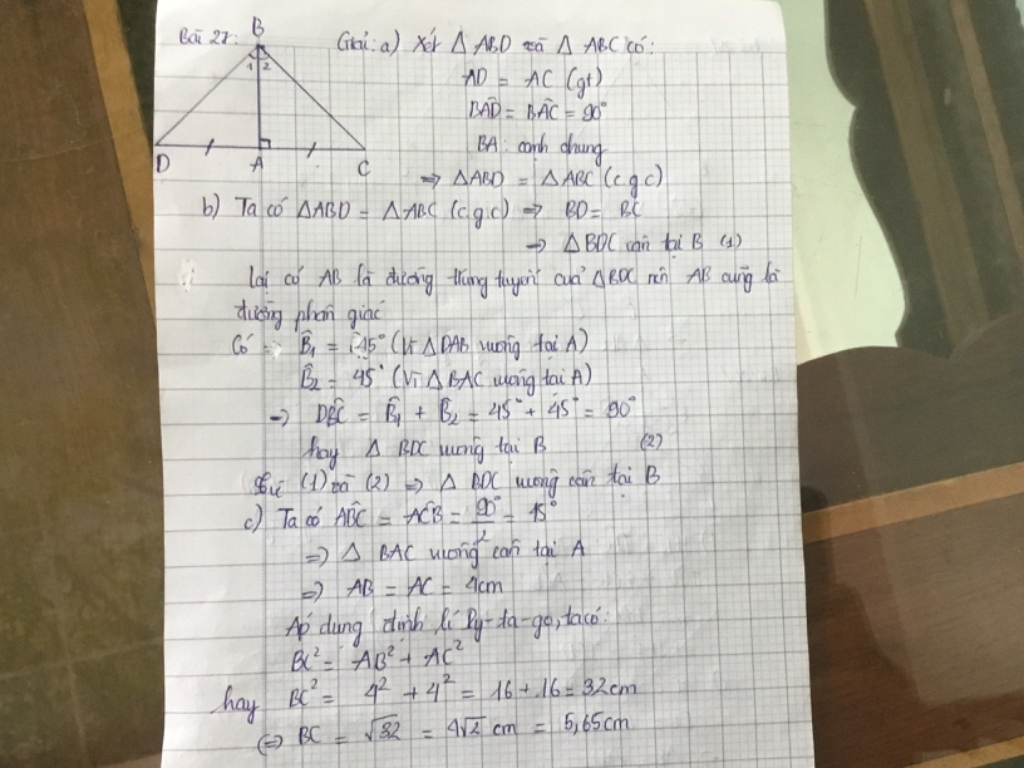 Bài 27:
B
1 2
D
A
C
Giải: a) Xét △ ABD và △ ABC có:
AD = AC (gt)
BÂD = BÂC = 90°
BA: cạnh chung
⇒ △ABD = △ABC (c.g.c)
b) Ta có △ABD = △ABC (c.g.c) ⇒ BD = BC
⇒ △BDC cân tại B (1)
Lại có AB là đường trung tuyến của △BDC nên AB cũng là
đường phân giác
Có B̂1 = 45° (Vì △DAB vuông tại A)
B̂2 = 45° (Vì △BAC vuông tại A)
⇒ DB̂C = B̂1 + B̂2 = 45° + 45° = 90°
hay △ BDC vuông tại B (2)
Từ (1) và (2) ⇒ △ BDC vuông cân tại B
c) Ta có AB̂C = AĈB = 90°/2 = 45°
⇒ △ BAC vuông cân tại A
⇒ AB = AC = 4cm
Áp dụng định lí Py-ta-go, ta có:
BC² = AB² + AC²
hay BC² = 4² + 4² = 16 + 16 = 32cm
⇔ BC = √32 = 4√2 cm = 5,65cm